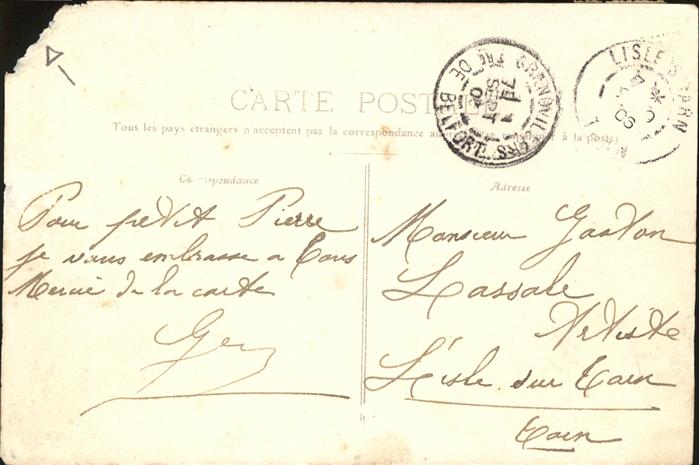 CARTE POST
Tous les pays étrangers n'acceptent pas la correspondance au à la poste)
Correspondance
Adresse
GRANDVILLARS
TRE DE BELFORT
7
SEPT
LISLE
TARN
Pour petit Pierre
je vous embrasse a tous
Merci de la carte
Monsieur Gaston
Lassale
Artiste
L'isle sur Tarn
Tarn